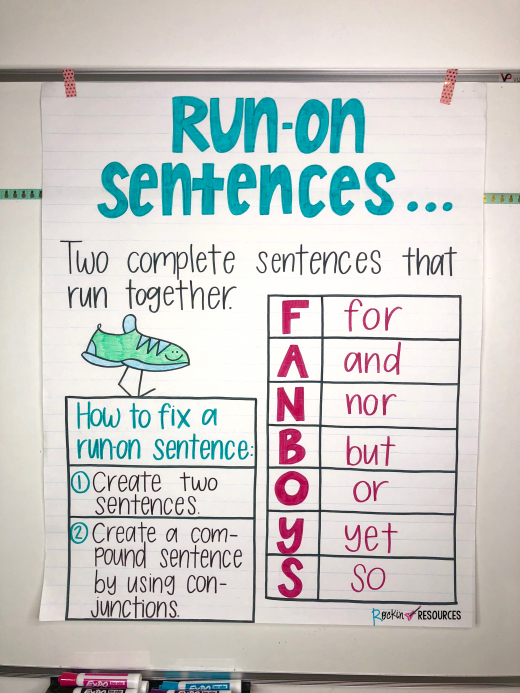 RUN-ON
SENTENCES...
Two complete sentences that
run together.
How to fix a
run-on sentence:
① Create two
sentences.
② Create a com-
pound sentence
by using con-
junctions.
F for
A and
N nor
B but
O or
Y yet
S so
Rockin RESOURCES
EXPO
EXPO